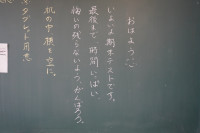 おはよう♡
いよいよ期末テストです。
最後まで時間いっぱい、
悔いの残らないよう、がんばろう。
机の中、横を空に。
タブレット用意